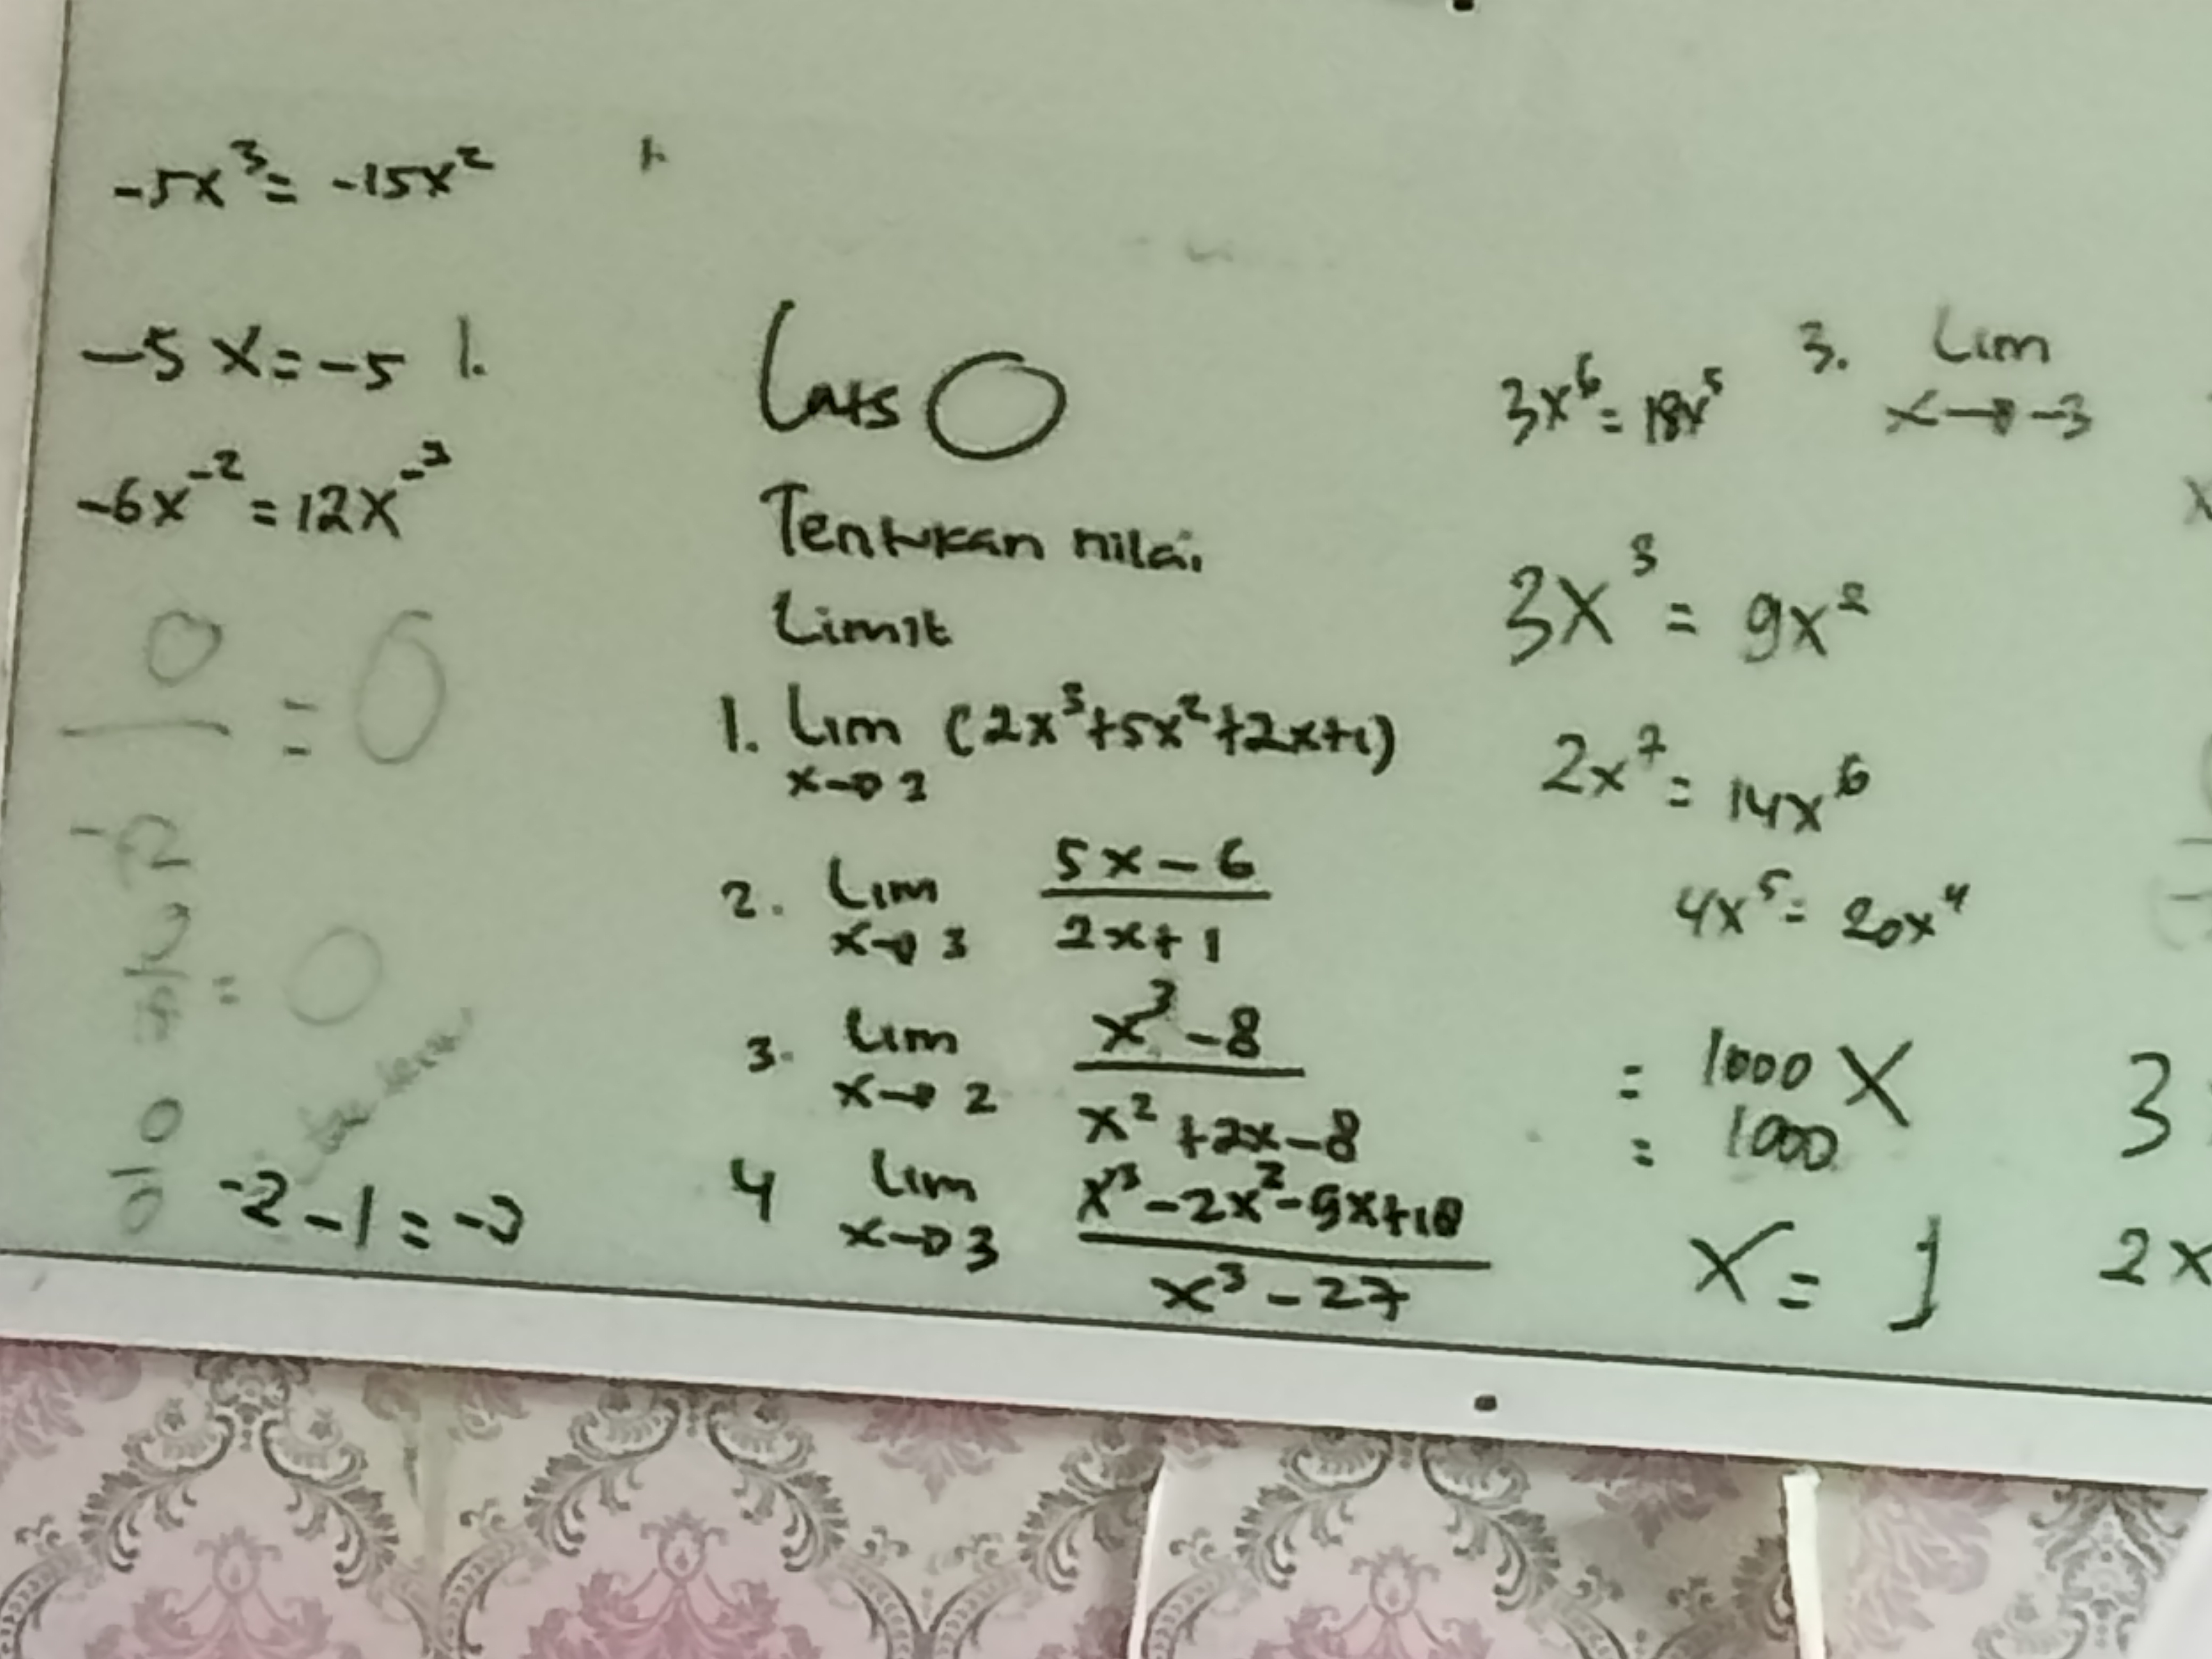 -5x³ = -15x²
-5x = -5 1.
-6x⁻² = 12x⁻³
0
— = 0
-2
= 0
0
—
0
-2-1 = -3
Lats
Tentukan nilai
Limit
1. Lim (2x³+5x²+2x+1)
x→2
2. Lim 5x-6
x→3 2x+1
3. Lim x³-8
x→2 x²+2x-8
4 Lim x³-2x²-9x+18
x→3 x³-27
3x⁶ = 18x⁵
3x³ = 9x²
2x⁷ = 14x⁶
4x⁵ = 20x⁴
= 1000 X
= 1000
x = 1
3. Lim
x→-3
x
3
2x